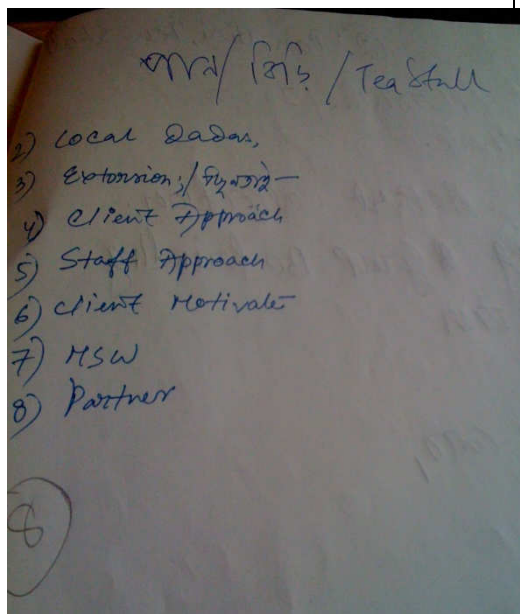 পান/ বিড়ি / Tea Stall
2) Local Dadas,
3) Extorsion; /
4) Client Approach
5) Staff Approach
6) Client Motivate
7) MSW
8) Partner
8